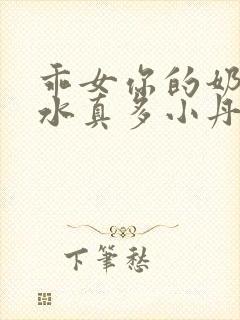 乖女你的奶
水真多小丹
下筆愁